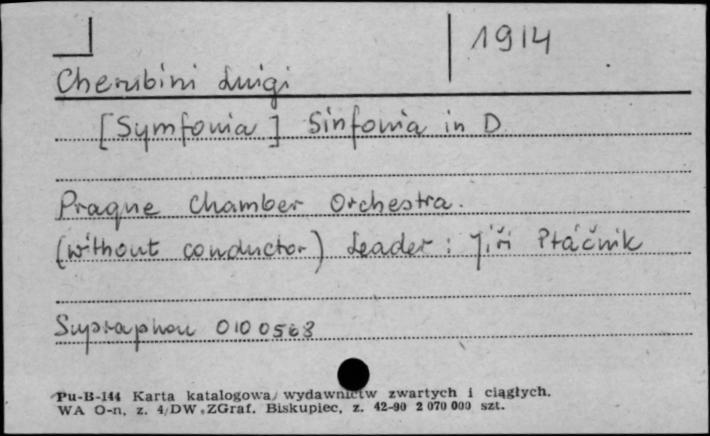 1914
Cherubini Luigi
[Symfonia] Sinfonia in D
Prague Chamber Orchestra.
(without conductor) Leader: Jiří Ptáčník
Supraphon 010 0568
Pu-B-144 Karta katalogowa wydawnictw zwartych i ciągłych.
WA O-n, z. 4/DW ZGraf. Biskupiec, z. 42-90 2 070 000 szt.